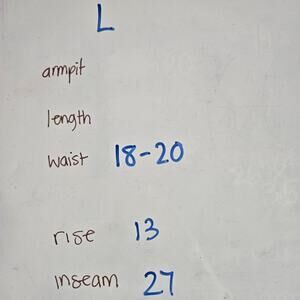 L
armpit
length
waist 18-20
rise 13
inseam 27